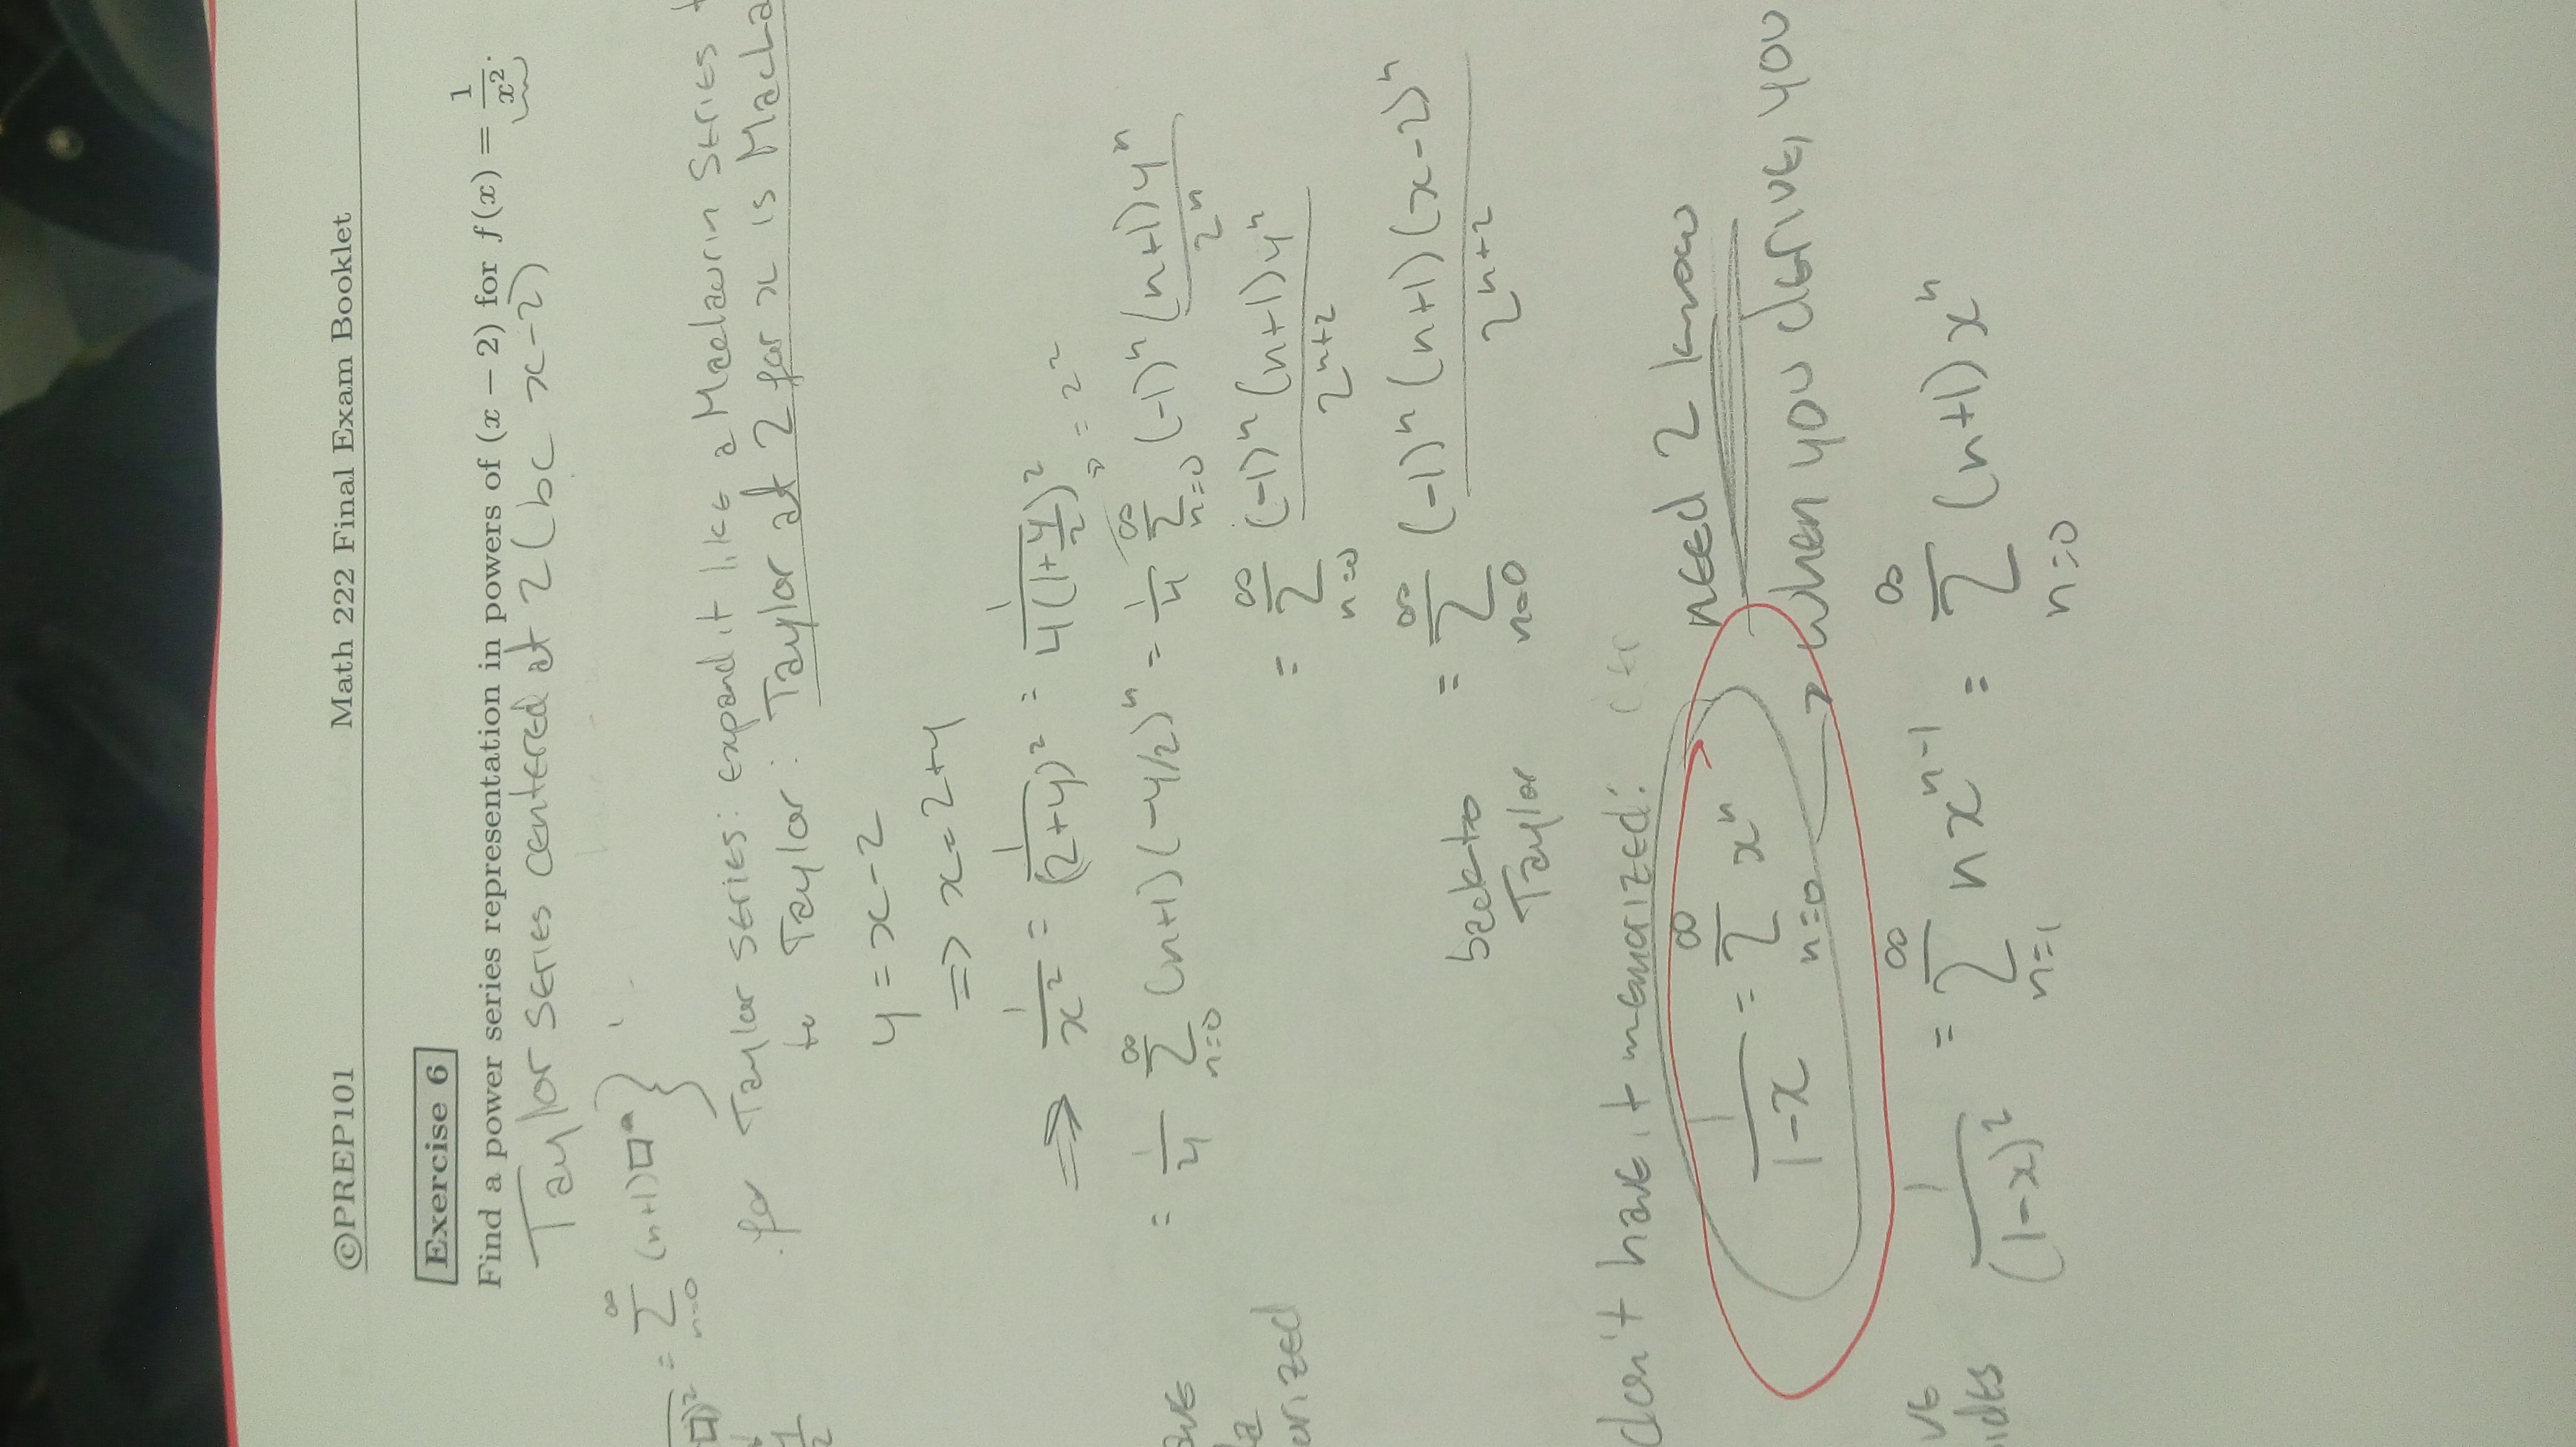 ©PREP101 Math 222 Final Exam Booklet
Exercise 6
Find a power series representation in powers of (x − 2) for f(x) = 1/x².
Taylor series centered at 2 (bc x-2)
□)² = ∑_{n=0}^{∞} (n+1)□ⁿ }
for Taylor series: expand it like a Maclaurin series
to Taylor: Taylor at 2 for x is Macla
y = x-2
=> x = 2+y
=> 1/x² = 1/(2+y)² = 1/(4(1+y/2)²) => = 2²
= 1/4 ∑_{n=0}^{∞} (n+1)(-y/2)ⁿ = 1/4 ∑_{n=0}^{∞} (-1)ⁿ (n+1)yⁿ/2ⁿ
= ∑_{n=0}^{∞} (-1)ⁿ(n+1)yⁿ/2ⁿ⁺²
orized
back to
Taylor
= ∑_{n=0}^{∞} (-1)ⁿ(n+1)(x-2)ⁿ/2ⁿ⁺²
don't have it memorized:
need 2 know
1/(1-x) = ∑_{n=0}^{∞} xⁿ
when you derive, you
ides 1/(1-x)² = ∑_{n=1}^{∞} n xⁿ⁻¹ = ∑_{n=0}^{∞} (n+1)xⁿ